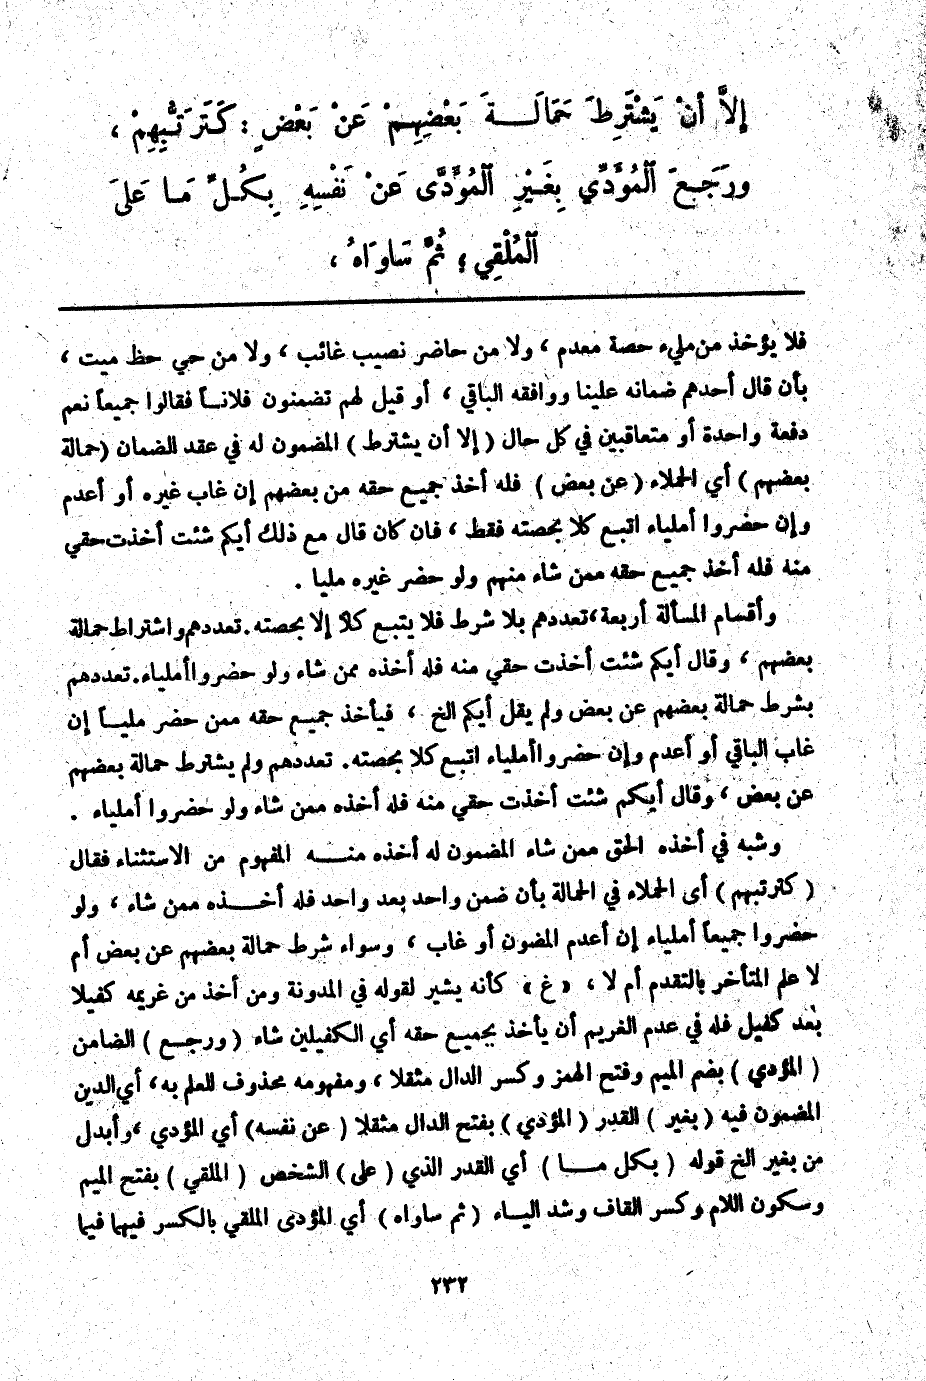 إلاَّ أنْ يَشْتَرِطَ حَمَالَـــةَ بَعْضِهِمْ عَنْ بَعْضٍ : كَتَرَتُّبِهِمْ ،
ورَجَعَ ٱلْمُؤَدِّي بِغَيْرِ ٱلْمُؤَدَّى عَنْ نَفْسِهِ بِكُلِّ مَا عَلَى
ٱلْمُلْقِي ؛ ثُمَّ سَاوَاهُ ،
فلا يؤخذ من مليء حصة معدم ، ولا من حاضر نصيب غائب ، ولا من حي حظ ميت ،
بأن قال أحدهم ضمانه علينا ووافقه الباقي ، أو قيل لهم تضمنون فلانــاً فقالوا جميعاً نعم
دفعة واحدة أو متعاقبين في كل حال ( إلا أن يشترط ) المضمون له في عقد الضمان (حمالة
بعضهم ) أي الحملاء ( عن بعض ) فله أخذ جميع حقه من بعضهم إن غاب غيره أو أعدم
وإن حضروا أملياء اتبع كلا بحصته فقط ، فان كان قال مع ذلك أيكم شئت أخذت حقي
منه فله أخذ جميع حقه ممن شاء منهم ولو حضر غيره مليا .
وأقسام المسألة أربعة،تعددهم بلا شرط فلا يتبع كلاً إلا بحصته.تعددهم واشتراط حمالة
بعضهم ، وقال أيكم شئت أخذت حقي منه فله أخذه ممن شاء ولو حضروا أملياء.تعددهم
بشرط حمالة بعضهم عن بعض ولم يقل أيكم الخ ، فيأخذ جميع حقه ممن حضر مليــاً إن
غاب الباقي أو أعدم وإن حضروا أملياء اتبع كلا بحصته. تعددهم ولم يشترط حمالة بعضهم
عن بعض ، وقال أيكم شئت أخذت حقي منه فله أخذه ممن شاء ولو حضروا أملياء .
وشبه في أخذه الحق ممن شاء المضمون له أخذه منـــه المفهوم من الاستثناء فقال
( كترتبهم ) أى الحملاء في الحمالة بأن ضمن واحد بعد واحد فله أخـــذه ممن شاء ، ولو
حضروا جميعاً أملياء إن أعدم المضون أو غاب ، وسواء شرط حمالة بعضهم عن بعض أم
لا علم المتأخر بالتقدم أم لا ، « غ » كأنه يشير لقوله في المدونة ومن أخذ من غريمه كفيلا
بعد كفيل فله في عدم الغريم أن يأخذ بجميع حقه أي الكفيلين شاء ( ورجــع ) الضامن
( المؤدي ) بضم الميم وفتح الهمز وكسر الدال مثقلا ، ومفهومه محذوف للعلم به، أي الدين
المضمون فيه ( بغير ) القدر ( المؤدي ) بفتح الدال مثقلا ( عن نفسه) أي المؤدي ،وأبدل
من بغير الخ قوله ( بكل مـــا ) أي القدر الذي ( على ) الشخص ( الملقي ) بفتح الميم
وسكون اللام وكسر القاف وشد اليــاء ( ثم ساواه ) أي المؤدى الملقي بالكسر فيهما فيما
٢٣٢